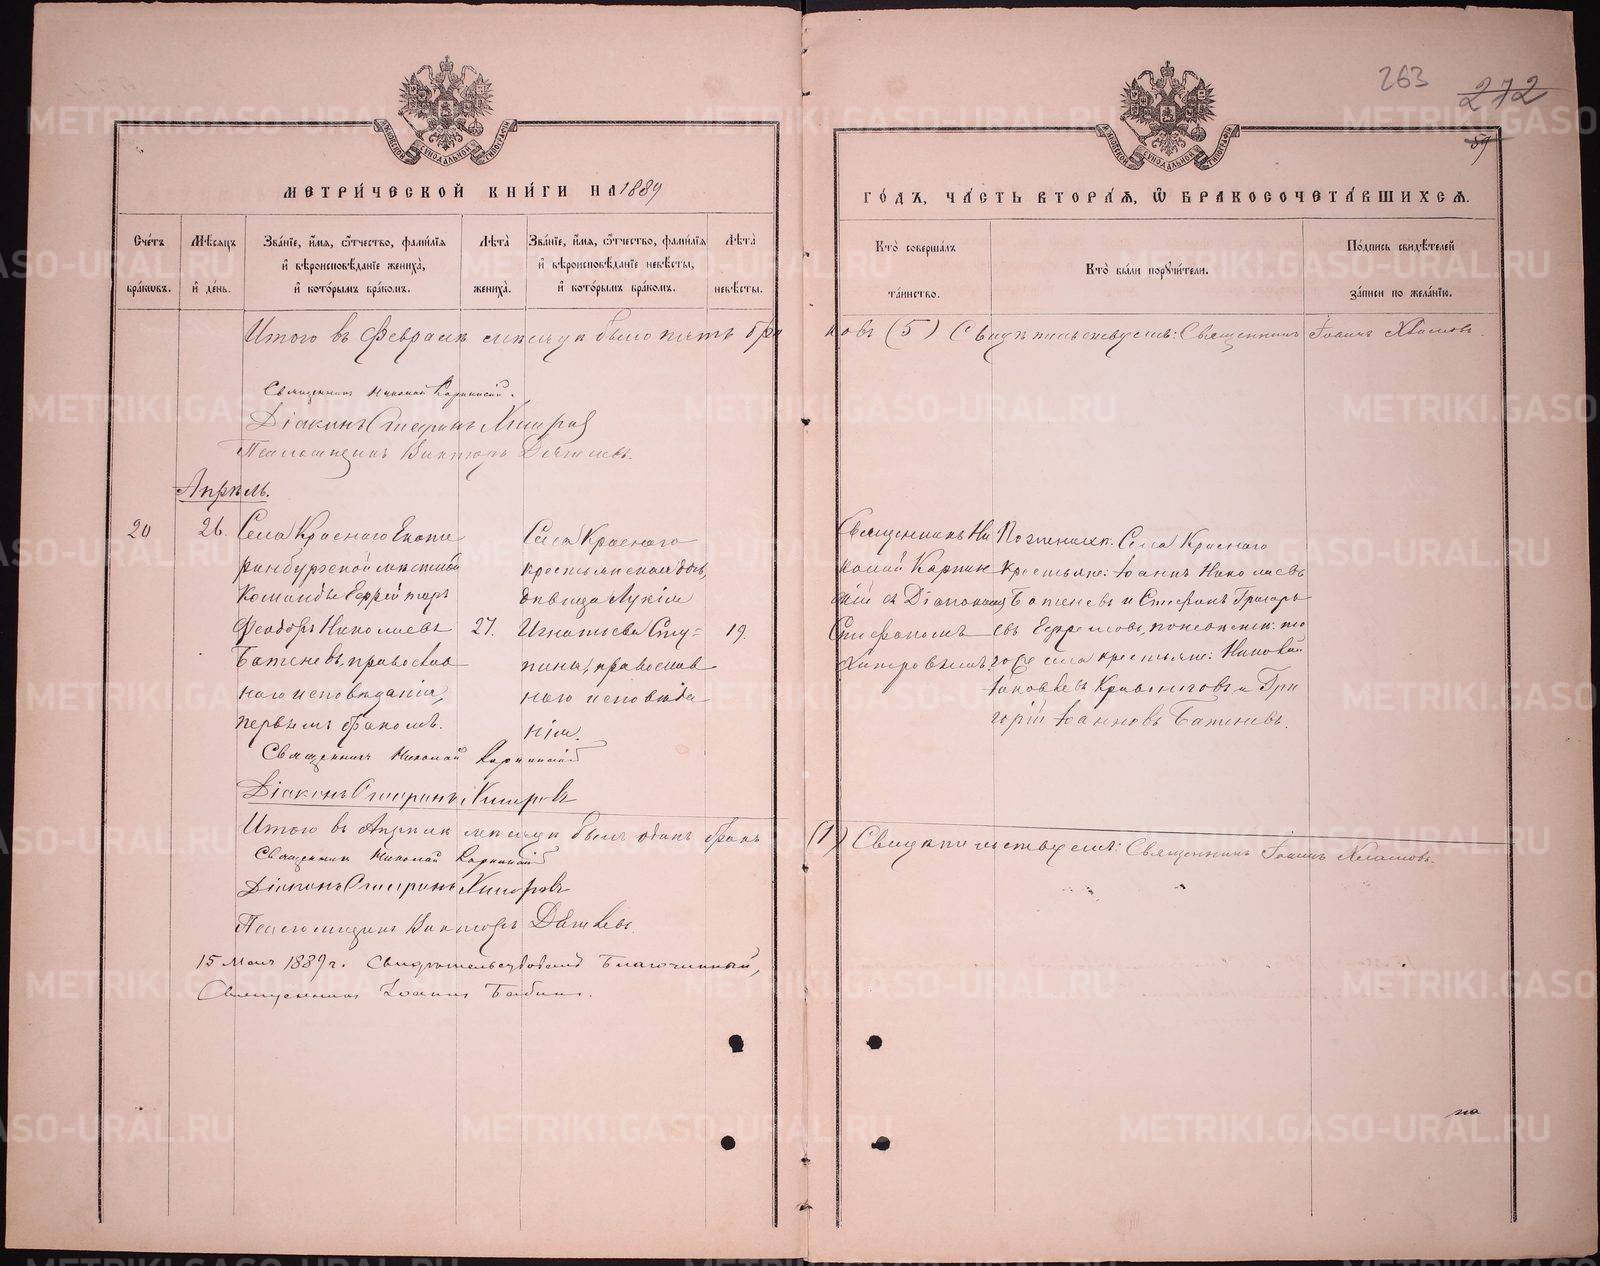 263
272
59
МОСКОВСКОЙ СѴНОДАЛЬНОЙ ТИПОГРАФІИ
МОСКОВСКОЙ СѴНОДАЛЬНОЙ ТИПОГРАФІИ
МЕТРИ́ЧЕСКОЙ КНИ́ГИ НА 1889
ГО́ДЪ, ЧА́СТЬ ВТОРА́Ѧ, Ѽ БРАКОСОЧЕТА́ВШИХСѦ.
Сче́тъ бра́кѡвъ.
Мѣ́сѧцъ и҆ де́нь.
Зва́нїе, и҆́мѧ, ѻ҆́тчество, фами́лїѧ и҆ вѣроисповѣ́данїе жениха̀, и҆ кото́рымъ бра́комъ.
Лѣ́та жениха̀.
Зва́нїе, и҆́мѧ, ѻ҆́тчество, фами́лїѧ и҆ вѣроисповѣ́данїе невѣ́сты, и҆ кото́рымъ бра́комъ.
Лѣ́та невѣ́сты.
Кто̀ соверша́лъ та́инство.
Кто̀ бы́ли порꙋчи́тели.
По́дпись свидѣ́телей за́писи по жела́нїю.
Итого въ Февралѣ мѣсяцѣ было пять бра
ковъ (5) Свидѣтельствуемъ: Священникъ Іоаннъ
Священникъ Николай Карпинскій.
Діаконъ Стефанъ Хитровъ
Псаломщикъ Викторъ
Апрѣль.
20
26.
Села Краснаго Екате
ринбургской мѣстной
Команды Ефрейторъ
Феодоръ Николаевъ
Батеневъ, православ
наго исповѣданія,
первымъ бракомъ.
27.
Села Краснаго
крестьянская дочь,
дѣвица Лукія
Игнатьева Сту-
пина, православ
наго исповѣда
нія.
19.
Священникъ Ни
колай Карпин
скій съ Діакономъ
Стефаномъ
Хитровымъ.
По женихѣ: Села Краснаго
крестьяне: Іоаннъ Николаевъ
Батеневъ и Стефанъ Григорь
евъ Ефремовъ, по невѣстѣ: то
го же села крестьяне: Николай
Іаковлевъ и Гри
горій Іоанновъ Батеневъ.
Священникъ Николай Карпинскій
Діаконъ Стефанъ Хитровъ
Итого въ Апрѣлѣ мѣсяцѣ былъ одинъ бракъ
(1) Свидѣтельствуемъ: Священникъ Іоаннъ
Священникъ Николай Карпинскій
Діаконъ Стефанъ Хитровъ
Псаломщикъ Викторъ
15 Мая 1889 г. Свидѣтельствовалъ Благочинный,
Священникъ Іоаннъ
METRIKI.GASO-URAL.RU